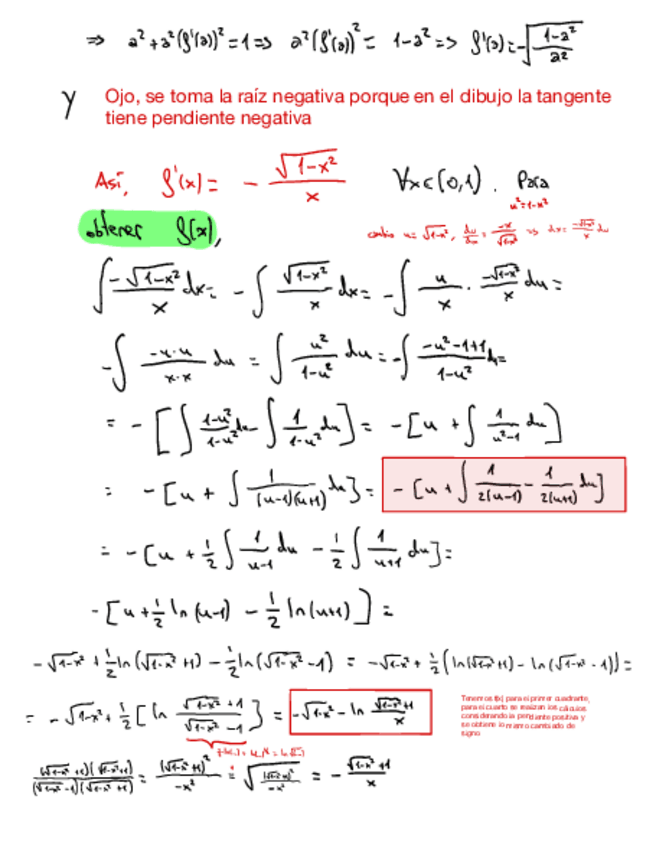 ⇒ a² + a²(f'(a))² = 1 ⇒ a²(f'(a))² = 1-a² ⇒ f'(a) = -√((1-a²)/a²)
y Ojo, se toma la raíz negativa porque en el dibujo la tangente
tiene pendiente negativa
Así, f'(x) = - √(1-x²)/x ∀x∈(0,1). Para
u²=1-x²
obtener f(x), cambio u = √(1-x²), du/dx = -x/√(1-x²) ⇒ dx = -√(1-x²)/x du
∫ -√(1-x²)/x dx = - ∫ √(1-x²)/x dx = - ∫ u/x · -√(1-x²)/x du =
-∫ -u·u/x·x du = ∫ u²/(1-u²) du = -∫ (-u²-1+1)/(1-u²) du =
= - [∫ (1-u²)/(1-u²) du - ∫ 1/(1-u²) du] = -[u + ∫ 1/(u²-1) du]
= -[u + ∫ 1/((u-1)(u+1)) du] = -[u + ∫ 1/(2(u-1)) - 1/(2(u+1)) du]
= -[u + 1/2 ∫ 1/(u-1) du - 1/2 ∫ 1/(u+1) du] =
-[u + 1/2 ln(u-1) - 1/2 ln(u+1)] =
-√(1-x²) + 1/2 ln(√(1-x²) +1) - 1/2 ln(√(1-x²) -1) = -√(1-x²) + 1/2 (ln(√(1-x²)+1) - ln(√(1-x²) -1)) =
= -√(1-x²) + 1/2 [ln (√(1-x²) +1)/(√(1-x²) -1)] = -√(1-x²) - ln (√(1-x²)+1)/x
Tenemos f(x) para el primer cuadrante,
para el cuarto se realizan los cálculos
considerando la pendiente positiva y
se obtiene lo mismo cambiado de
signo
(√(1-x²) +1)(√(1-x²)+1)/((√(1-x²) -1)(√(1-x²) +1)) = (√(1-x²) +1)²/-x² = √((√(1-x²)+1)²/-x²) = - (√(1-x²) +1)/x